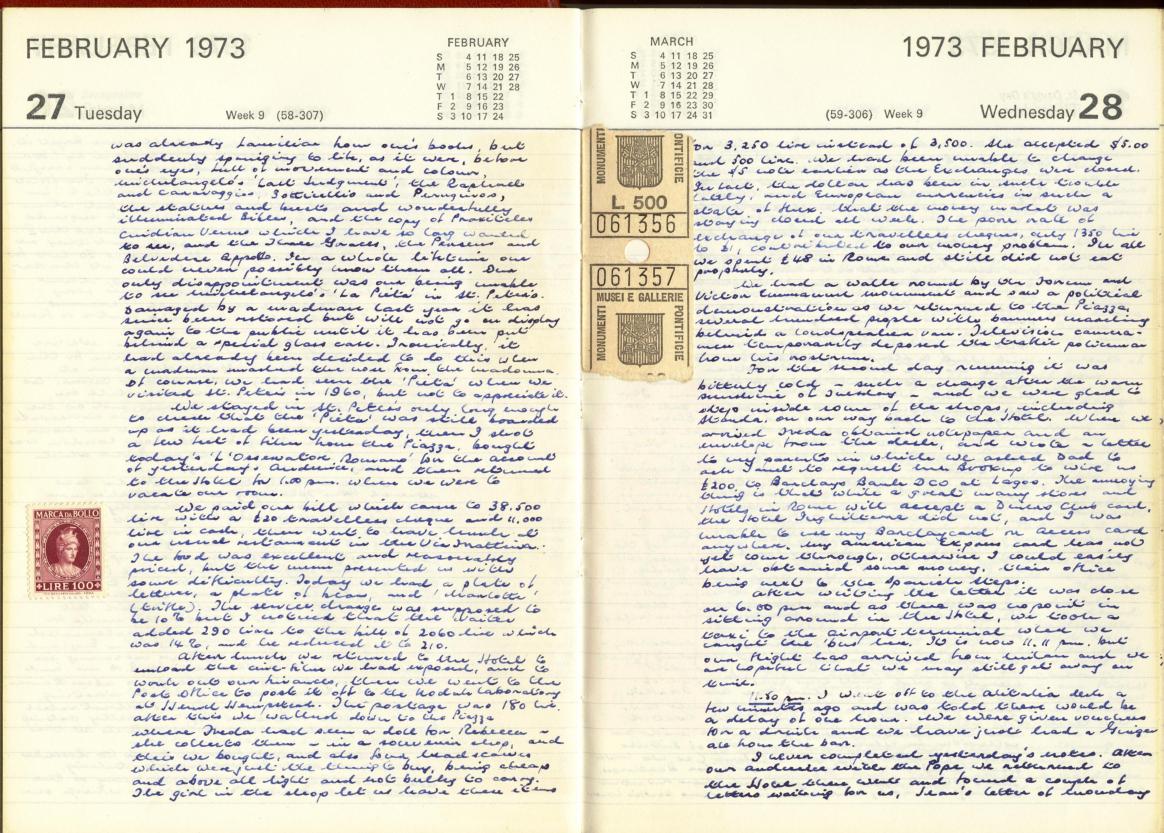 FEBRUARY 1973
FEBRUARY
S 4 11 18 25
M 5 12 19 26
T 6 13 20 27
W 7 14 21 28
T 1 8 15 22
F 2 9 16 23
S 3 10 17 24
27 Tuesday
Week 9 (58-307)
was already familiar from one's books, but
suddenly springing to life, as it were, before
one's eyes, full of movement and colour,
Michelangelo's 'Last Judgment', the Raphaels
and Caravaggios, Botticellis and Peruginos,
the statues and busts and wonderfully
illuminated Bibles, and the copy of Praxiteles
Cnidian Venus which I have so long wanted
to see, and the Three Graces, the Perseus and
Belvedere Apollo. In a whole lifetime one
could never possibly know them all. Our
only disappointment was our being unable
to see Michelangelo's 'La Pieta' in St. Peter's.
Damaged by a madman last year it has
been restored but will not go on display
again to the public until it has been put
behind a special glass case. Ironically, it
had already been decided to do this when
a madman smashed the nose from the madonna.
Of course, we had seen the 'Pieta' when we
visited St. Peter's in 1960, but not to appreciate it.
We stayed in St. Peter's only long enough
to check that the 'Pieta' was still boarded
up as it had been yesterday, then I shot
a few feet of film from the Piazza, bought
today's 'L'Osservatore Romano' for the account
of yesterday's Audience, and then returned
to the Hotel for 1.00 pm. when we were to
vacate our room.
We paid our bill which came to 38,500
lire with a £20 travellers cheque and 11,000
lire in cash, then went to have lunch at
our usual restaurant in the Via Frattina.
The food was excellent and reasonably
priced, but the menu presented us with
some difficulty. Today we had a plate of
lettuce, a plate of ham, and 'Charlotte'
(trifle). The service charge was supposed to
be 10% but I noticed that the waiter
added 290 lire to the bill of 2060 lire which
was 14%, and he reduced it to 210.
After lunch we returned to the Hotel to
unload the cine-film we had exposed, and to
work out our finances, then we went to the
Post Office to post it off to the Kodak laboratory
at Hemel Hempstead. The postage was 180 lire.
After this we walked down to the Piazza
where Freda had seen a doll for Rebecca –
she collects them – in a souvenir shop, and
this we bought, and also four head scarves
which were just the thing to buy, being cheap
and above all light and not bulky to carry.
The girl in the shop let us have these items
MARCA DA BOLLO
LIRE 100
1973 FEBRUARY
MARCH
S 4 11 18 25
M 5 12 19 26
T 6 13 20 27
W 7 14 21 28
T 1 8 15 22 29
F 2 9 16 23 30
S 3 10 17 24 31
(59-306) Week 9
Wednesday 28
MONUMENTI
PONTIFICIE
L. 500
061356
061357
MUSEI E GALLERIE
MONUMENTI
PONTIFICIE
for 3,250 lire instead of 3,500. She accepted $5.00
and 500 lire. We had been unable to change
the $5 note earlier as the Exchanges were closed.
In fact, the dollar has been in such trouble
lately, and European currencies in such a
state of flux, that the money market was
staying closed all week. The poor rate of
exchange of our travellers cheques, only 1350 lire
to £1, contributed to our money problem. In all
we spent £48 in Rome and still did not eat
properly.
We had a walk round by the Forum and
Victor Emmanuel monument and saw a political
demonstration as we returned to the Piazza,
several hundred people with banners marching
behind a loudspeaker van. Television camera-
men temporarily deposed the traffic policeman
from his rostrum.
For the second day running it was
bitterly cold – such a change after the warm
sunshine of Tuesday – and we were glad to
step inside some of the shops, including
Standa, on our way back to the Hotel. When we
arrived Freda obtained notepaper and an
envelope from the desk, and wrote a letter
to my parents in which we asked Dad to
ask to request to wire us
£200 to Barclays Bank DCO at Lagos. The annoying
thing is that while a great many stores and
Hotels in Rome will accept a Diners Club card,
the Hotel Inghilterra did not, and I was
unable to use my Barclaycard or Access card
anywhere. My American Express card has not
yet come through, otherwise I could easily
have obtained some money, their office
being next to the Spanish Steps.
After writing the letter it was close
on 6.00 pm and as there was no point in
sitting around in the Hotel, we took a
taxi to the airport terminal where we
caught the bus here. It is now 11.11 pm. but
our flight has arrived from Milan and we
are hopeful that we may still get away on
time.
11.50 pm. I went off to the Alitalia desk a
few minutes ago and was told there would be
a delay of one hour. We were given vouchers
for a drink and we have just had a Ginger
ale from the bar.
I never completed yesterday's notes. After
our audience with the Pope we returned to
the Hotel then went and found a couple of
letters waiting for us, Jean's letter of Monday